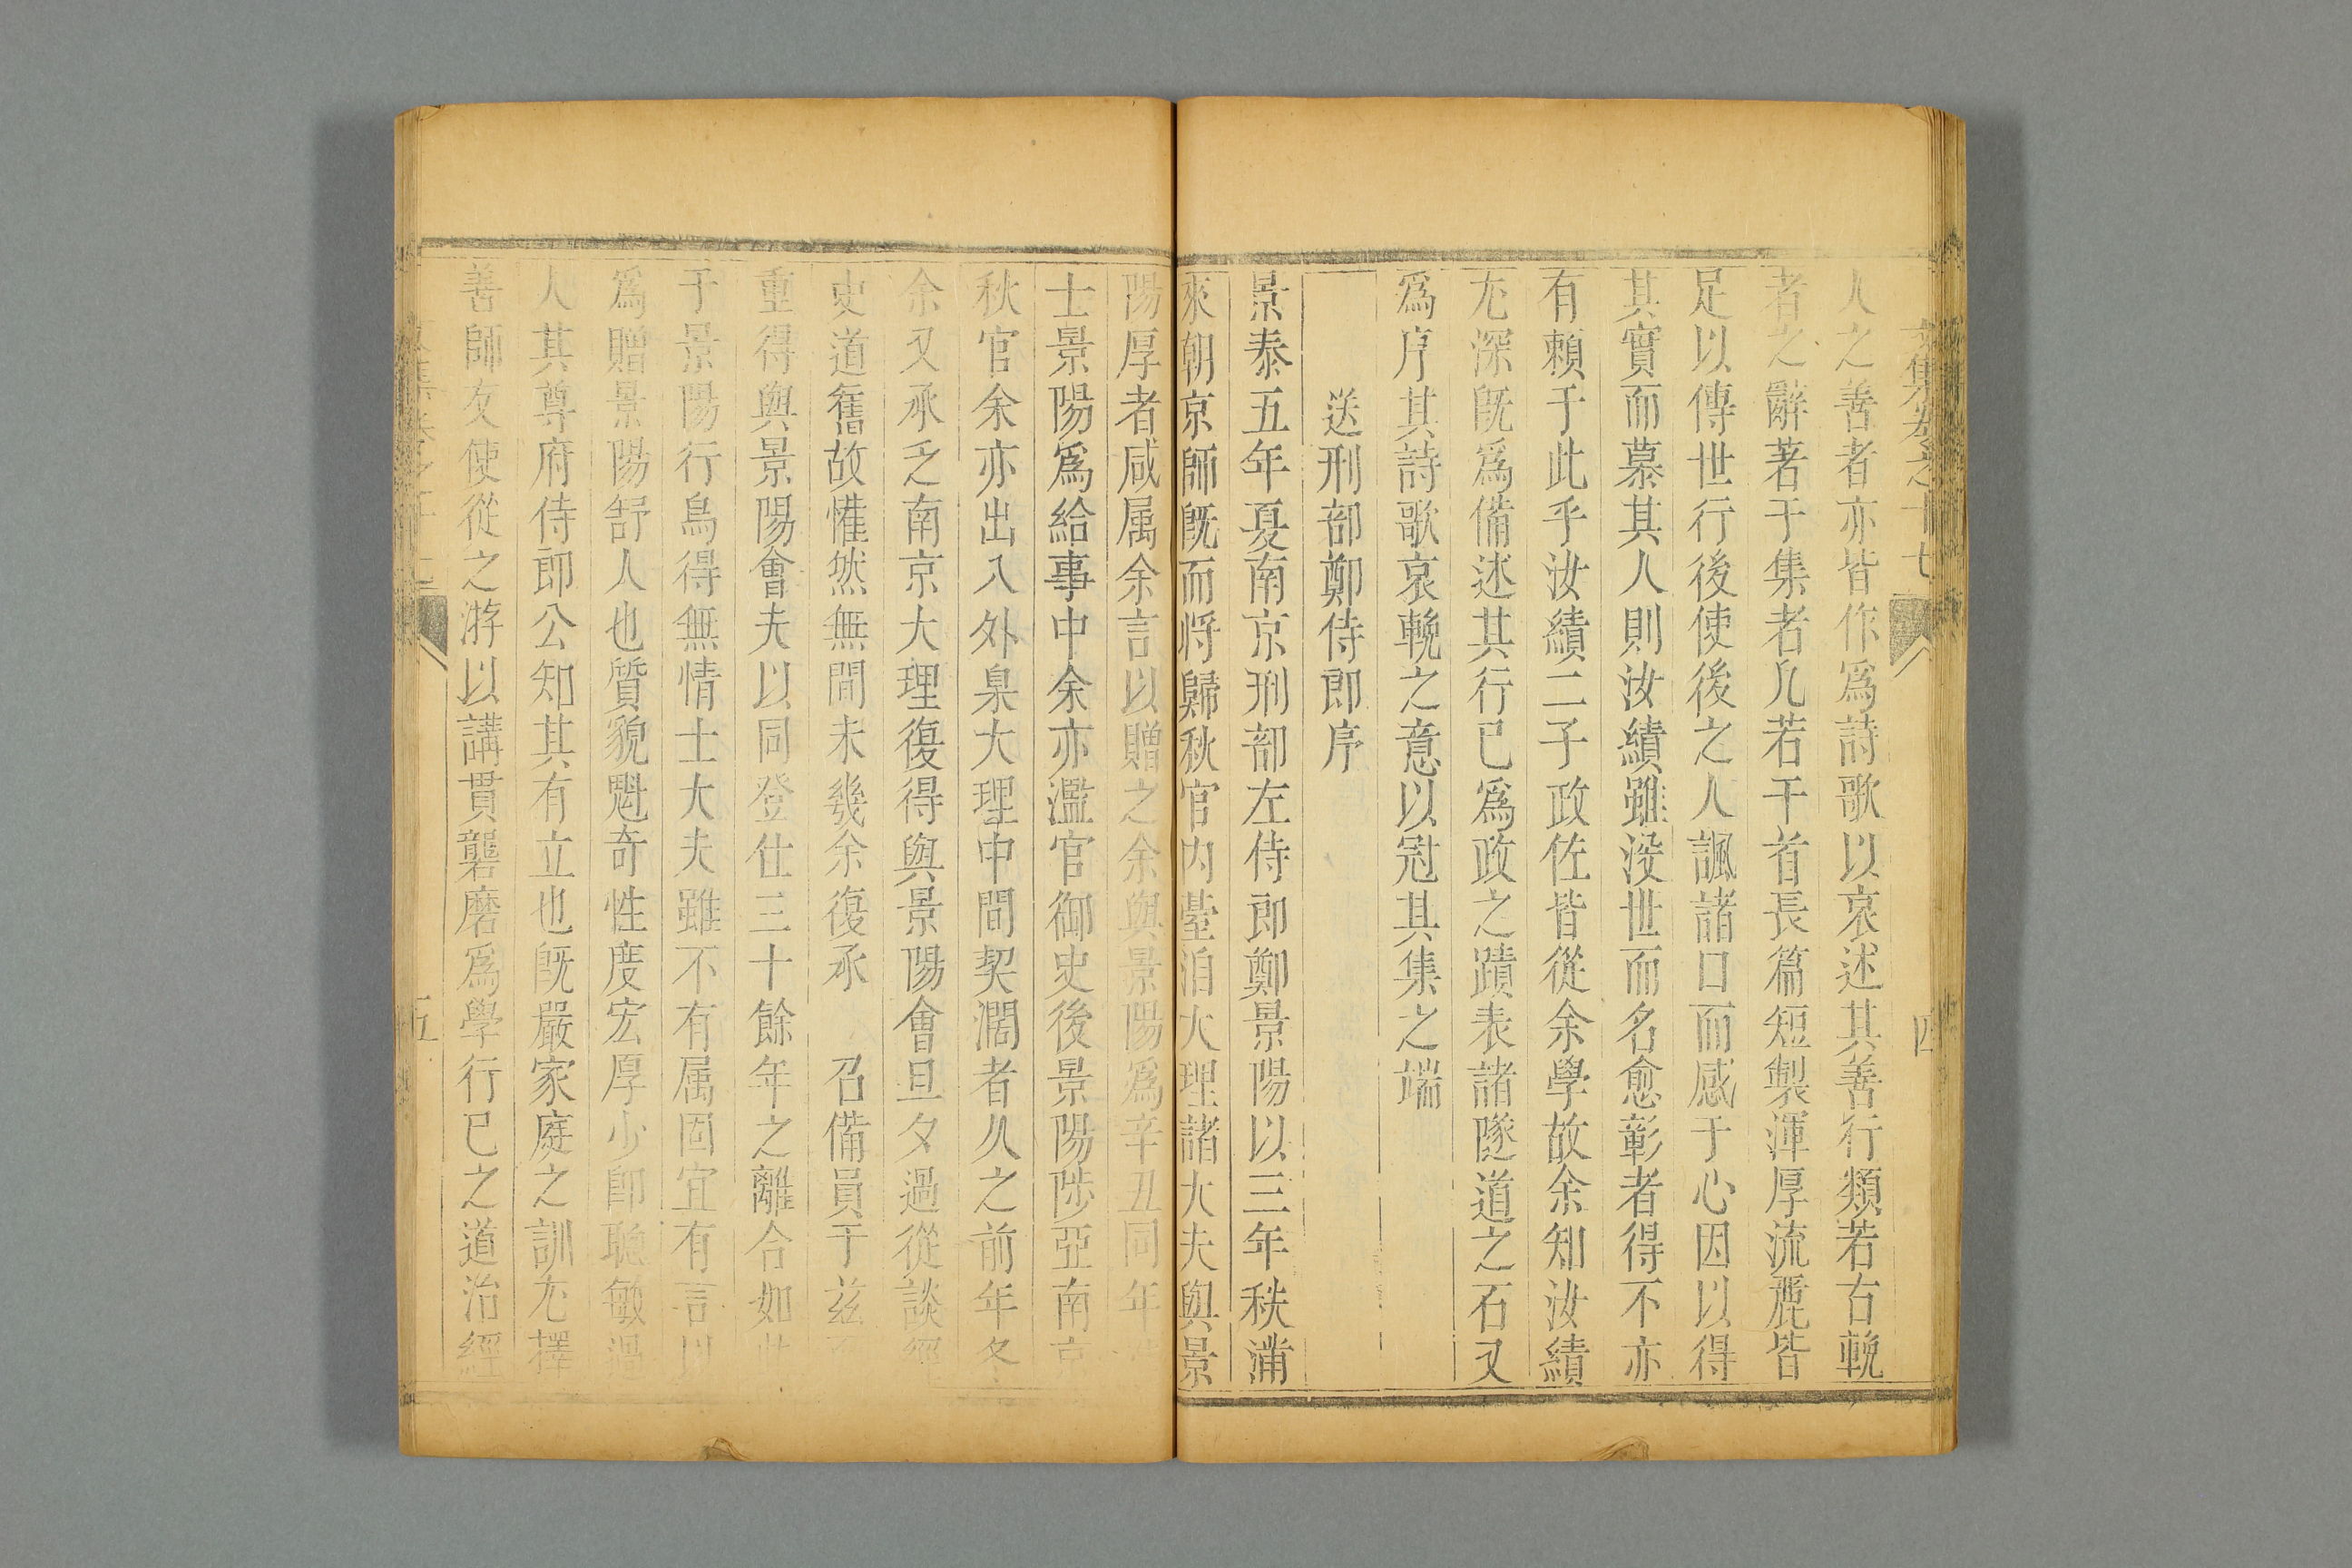 人之善者亦皆作爲詩歌以哀述其善行類若右輓
者之辭著于集者凡若干首長篇短製渾厚流麗皆
足以傳世行後使後之人諷諸口而感于心因以得
其實而慕其人則汝績雖沒世而名愈彰者得不亦
有賴于此乎汝績二子政佐皆從余學故余知汝績
尤深旣爲備述其行已爲政之蹟表諸隧道之石又
爲序其詩歌哀輓之意以冠其集之端
送刑部鄭侍郎序
景泰五年夏南京刑部左侍郎鄭景陽以三年秩滿
來朝京師旣而將歸秋官內臺洎大理諸大夫與景
陽厚者咸属余言以贈之余與景陽爲辛丑同年
士景陽爲給事中余亦濫官御史後景陽陟亞南京
秋官余亦出入外臬大理中間契濶者乆之前年冬
余又承乏南京大理復得與景陽會旦夕過從談經
史道舊故懽然無間未幾余復承 召備員于兹
重得與景陽會夫以同登仕三十餘年之離合如此
于景陽行烏得無情士大夫雖不有属固宜有言以
爲贈景陽舒人也質貌魁奇性度宏厚少卽聰敏過
人其尊府侍郎公知其有立也旣嚴家庭之訓尤擇
善師友使從之游以講貫礱磨爲學行已之道治經
文集卷之十七
四
五